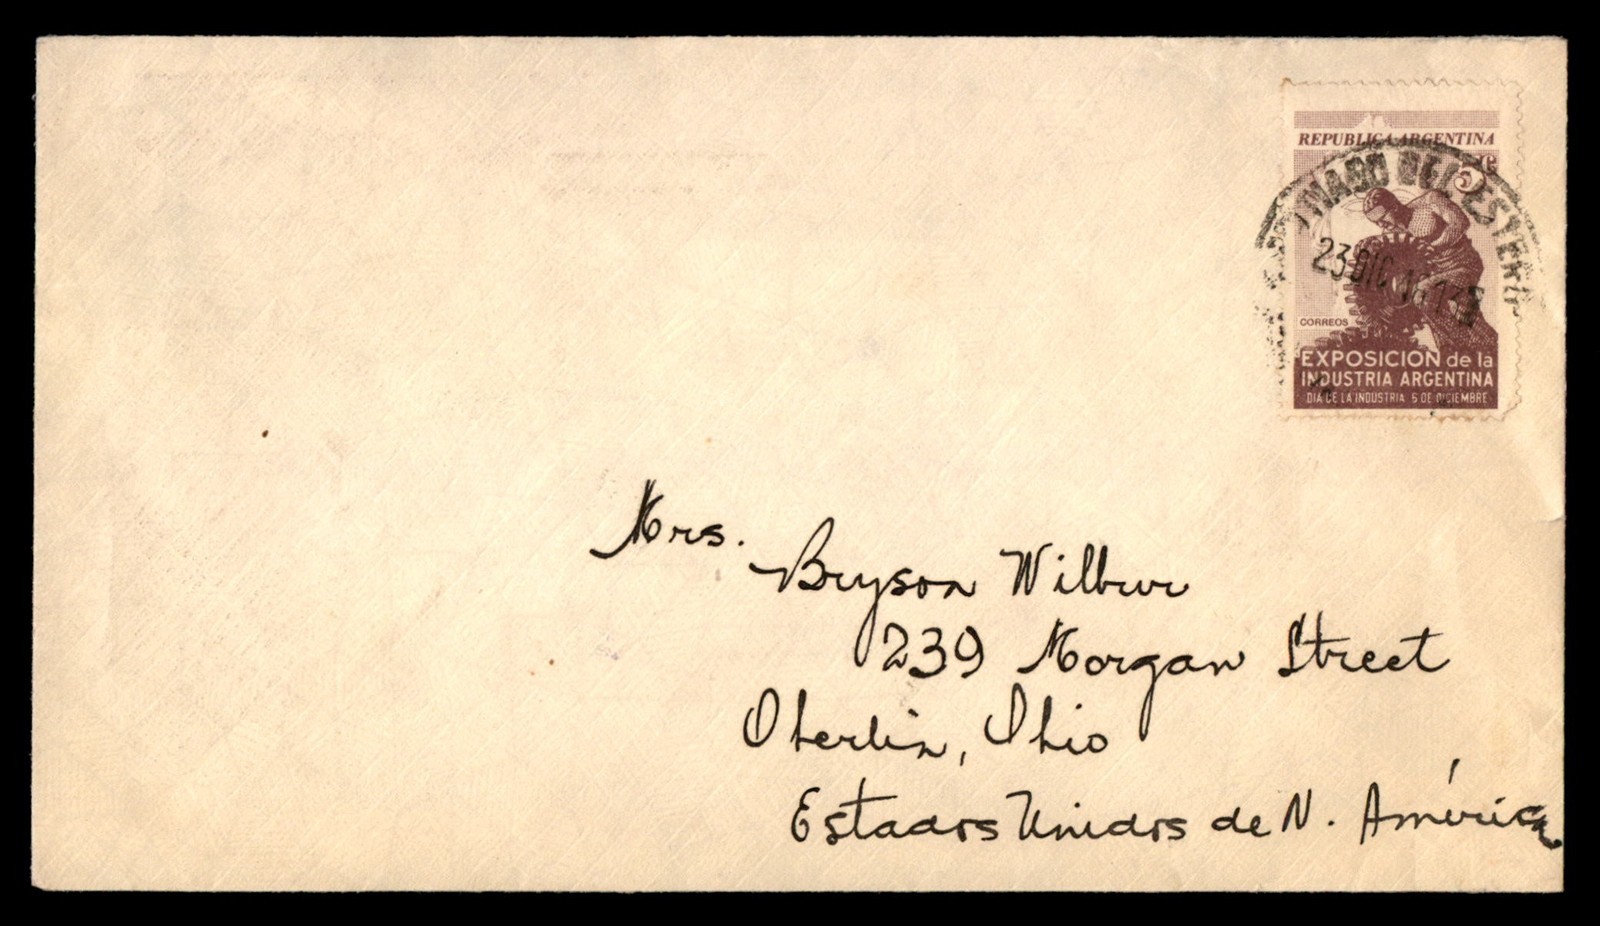 REPUBLICA ARGENTINA
5 c
DEL ESTERO
23 DIC
CORREOS
EXPOSICION de la
INDUSTRIA ARGENTINA
DIA DE LA INDUSTRIA 5 DE DICIEMBRE
Mrs.
Bryson Wilbur
239 Morgan Street
Oberlin, Ohio
Estados Unidos de N. América